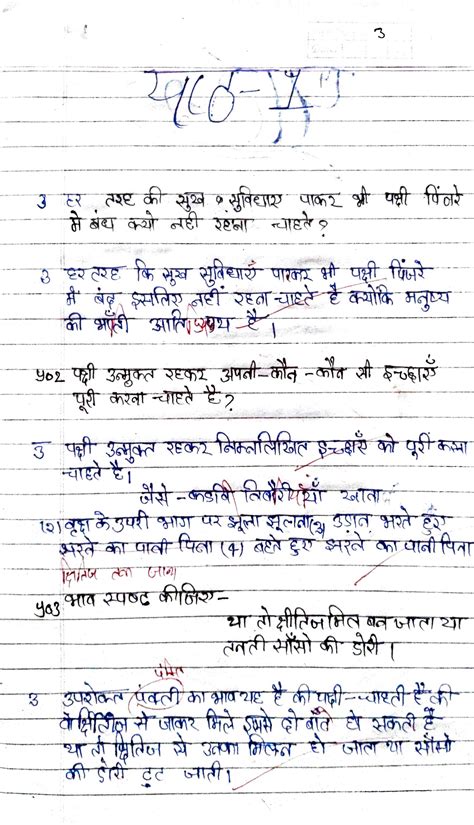 3
पाठ-1
3 हर तरह की सुख सुविधाए पाकर भी पक्षी पिंजरे
मे बंध क्यो नही रहना चाहते?
3 हर तरह कि सुख सुविधाएँ पाकर भी पक्षी पिंजरे
में बंद इसलिए नहीं रहना चाहते है क्योकि मनुष्य
की भाँती आति है।
प्र02 पक्षी उन्मुक्त रहकर अपनी-कौन-कौन सी इच्छाएँ
पूरी करना चाहते है?
उ पक्षी उन्मुक्त रहकर निम्नलिखित इच्छाएँ को पूरी करना
चाहते है।
जैसे - कडवी निबौरीयाँ खाना
(२) वृक्ष के उपरी भाग पर झूला झूलना(३) उड़ान भरते हुए
झरने का पानी पिना (4) बहते हुए झरने का पानी पिना
क्षितिज तक जाना
प्र03 भाव स्पष्ट कीजिए-
या तो क्षीतिज मिलन बन जाता या
तनती साँसो की डोरी।
पंक्ति
3 उपरोक्त पंक्ती का भाव यह है की पक्षी-चाहती है की
वे क्षितिज से जाकर मिले इसमे दो बाते हो सकती है
या तो क्षितिज से उनका मिलन हो जाता या साँसो
की डोरी टुट जाती।